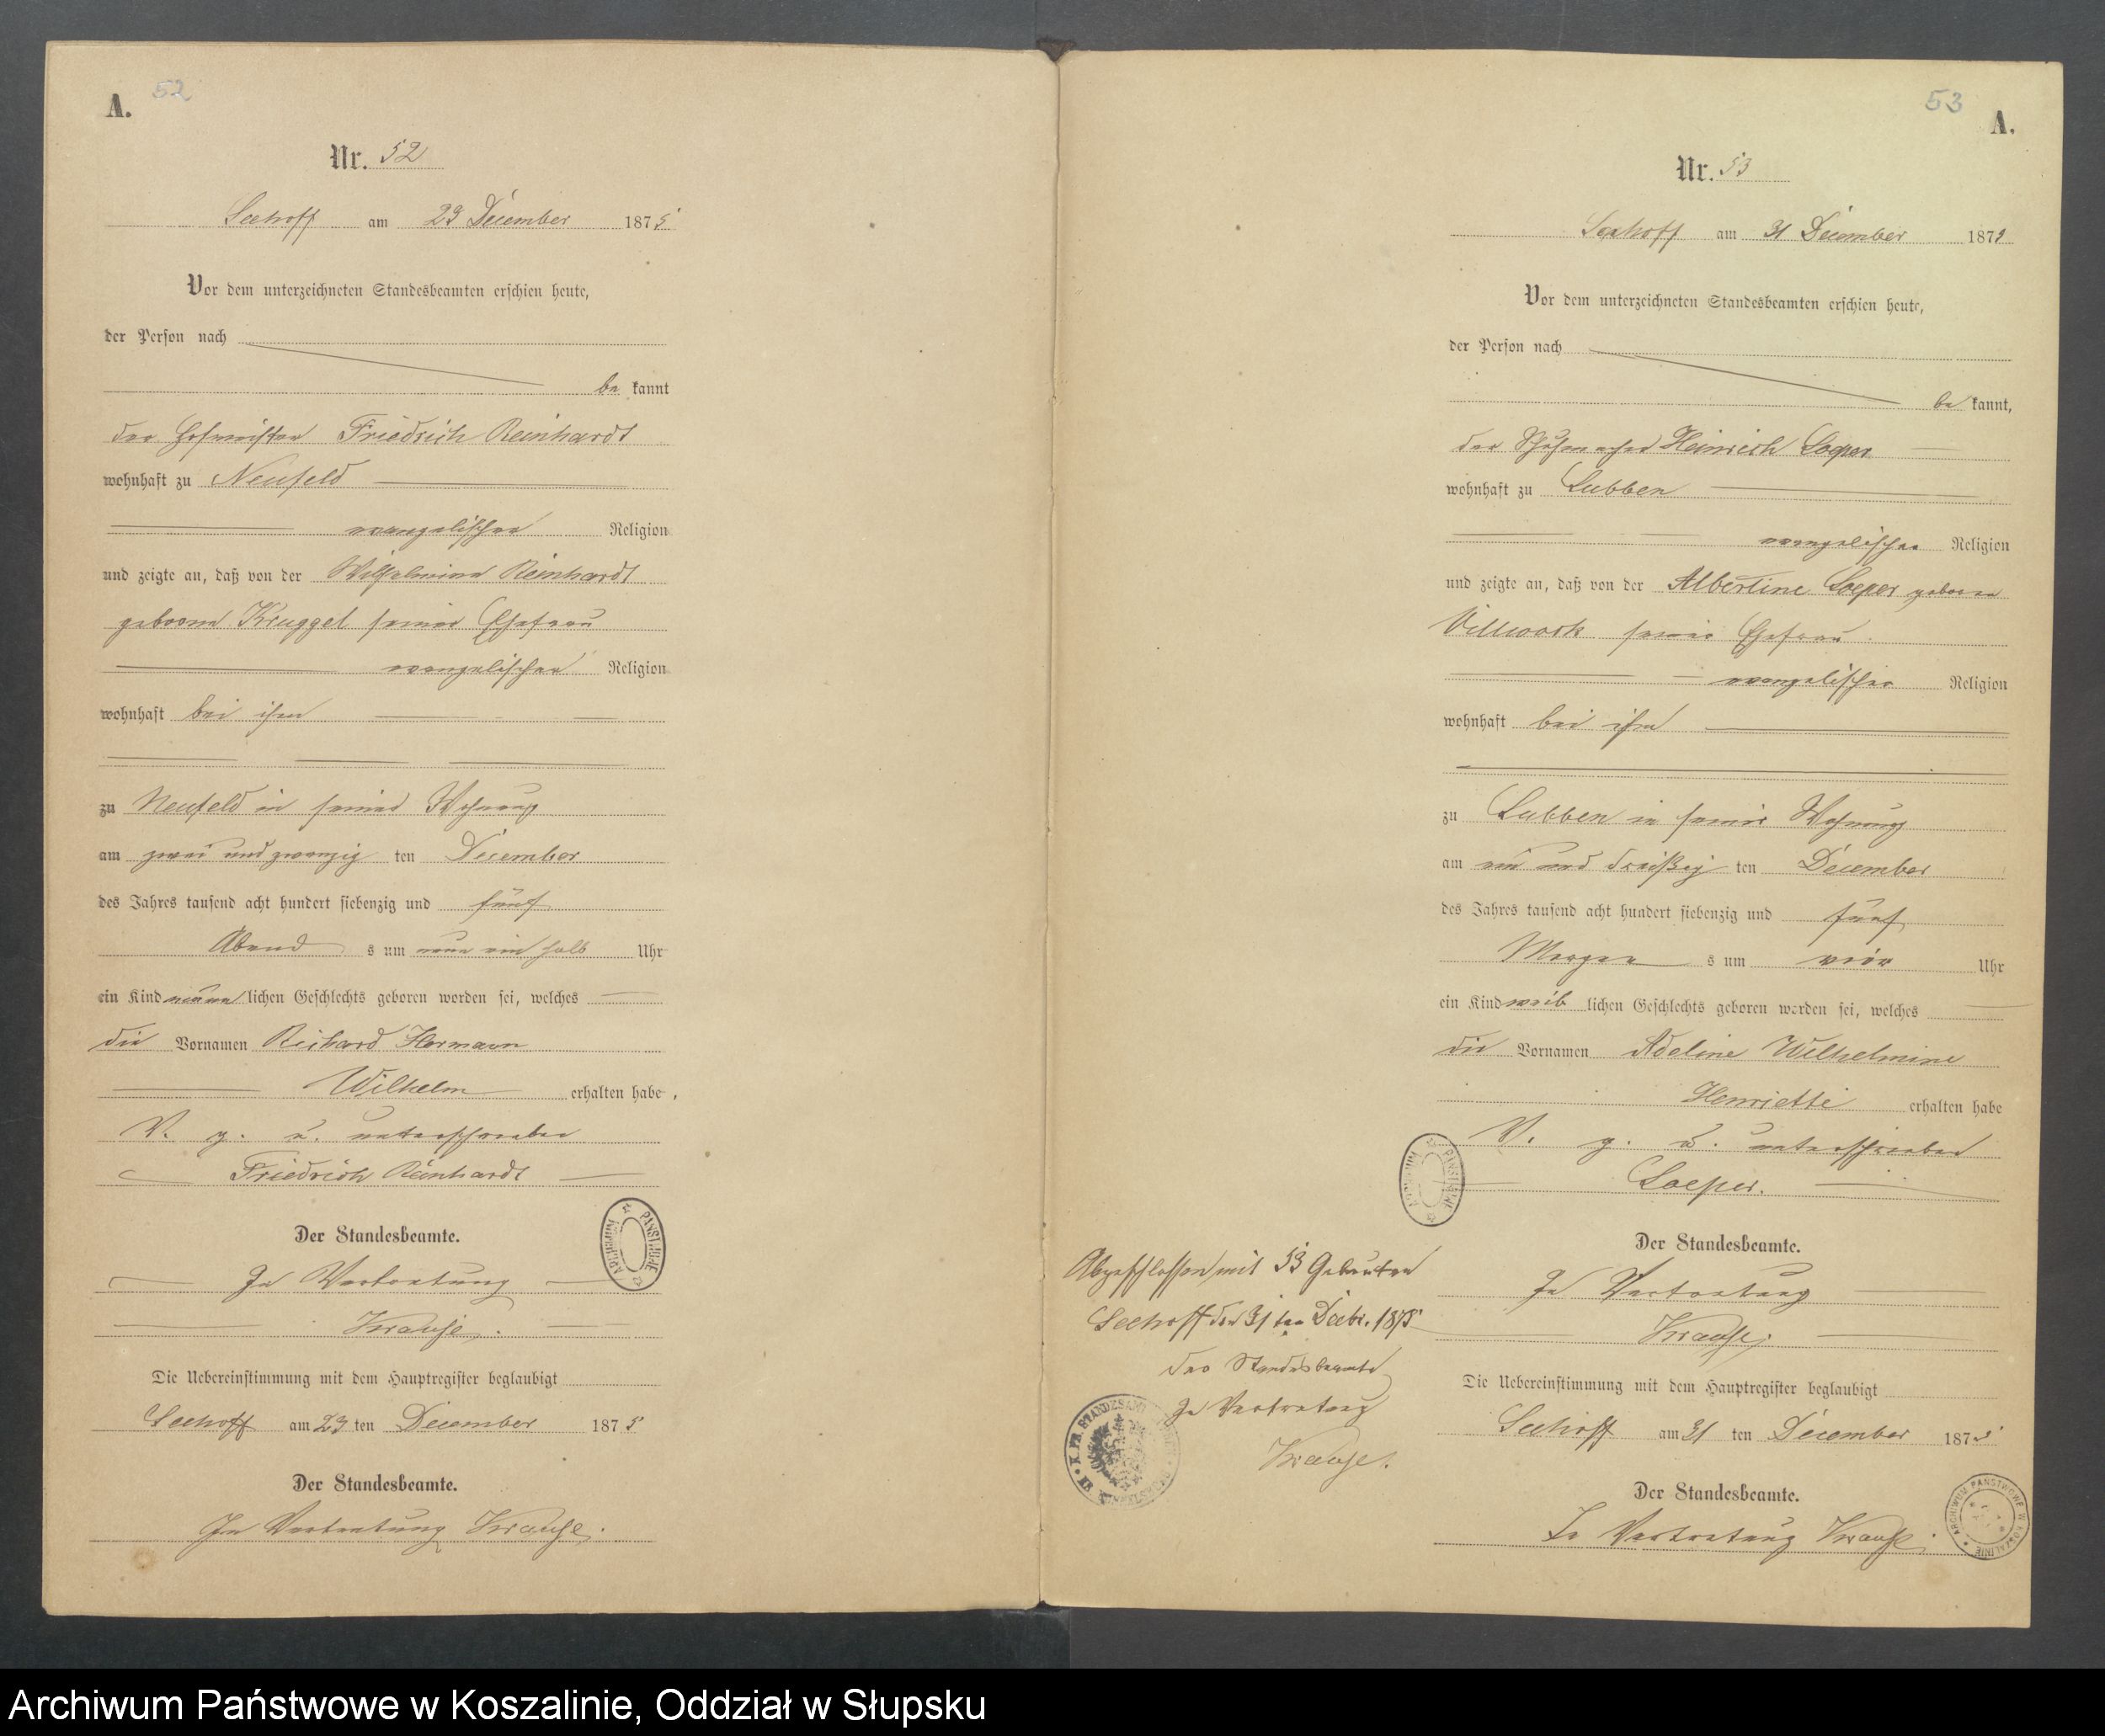 A. 52
Nr. 52
Seehoff am 23 December 1875
Vor dem unterzeichneten Standesbeamten erschien heute,
der Person nach
be kannt
der Hofmeister Friedrich Reinhardt
wohnhaft zu Neufeld
evangelischer Religion
und zeigte an, daß von der Wilhelmine Reinhardt
geborne Kruggel seiner Ehefrau
evangelischer Religion
wohnhaft bei ihm
zu Neufeld in seiner Wohnung
am zwei und zwanzig ten December
des Jahres tausend acht hundert siebenzig und fünf
Abend s um neun ein halb Uhr
ein Kind männ lichen Geschlechts geboren worden sei, welches
die Vornamen Richard Hermann
Wilhelm erhalten habe,
V. g. u. unterschrieben
Friedrich Reinhardt
Der Standesbeamte.
In Vertretung
Krause.
Die Uebereinstimmung mit dem Hauptregister beglaubigt
Seehoff am 23 ten December 1875
Der Standesbeamte.
In Vertretung Krause.
ARCHIWUM PAŃSTWOWE
53 A.
Nr. 53
Seehoff am 31 December 1875
Vor dem unterzeichneten Standesbeamten erschien heute,
der Person nach
be kannt,
der Schuhmacher Heinrich Loeper
wohnhaft zu Lubben
evangelischer Religion
und zeigte an, daß von der Albertine Loeper geborne
Villwock seiner Ehefrau
evangelischer Religion
wohnhaft bei ihm
zu Lubben in seiner Wohnung
am ein und dreißig ten December
des Jahres tausend acht hundert siebenzig und fünf
Morgen s um vier Uhr
ein Kind weib lichen Geschlechts geboren worden sei, welches
die Vornamen Adeline Wilhelmine
Henriette erhalten habe
V. g. u. unterschrieben
Loeper.
Der Standesbeamte.
In Vertretung
Krause.
Die Uebereinstimmung mit dem Hauptregister beglaubigt
Seehoff am 31 ten December 1875
Der Standesbeamte.
In Vertretung Krause.
ARCHIWUM PAŃSTWOWE
Abgeschlossen mit 53 Geburten
Seehoff den 31 ten Decbr. 1875
Der Standesbeamte
In Vertretung
Krause.
K. PR. STANDESAMT
ARCHIWUM PAŃSTWOWE W KOSZALINIE
Archiwum Państwowe w Koszalinie, Oddział w Słupsku